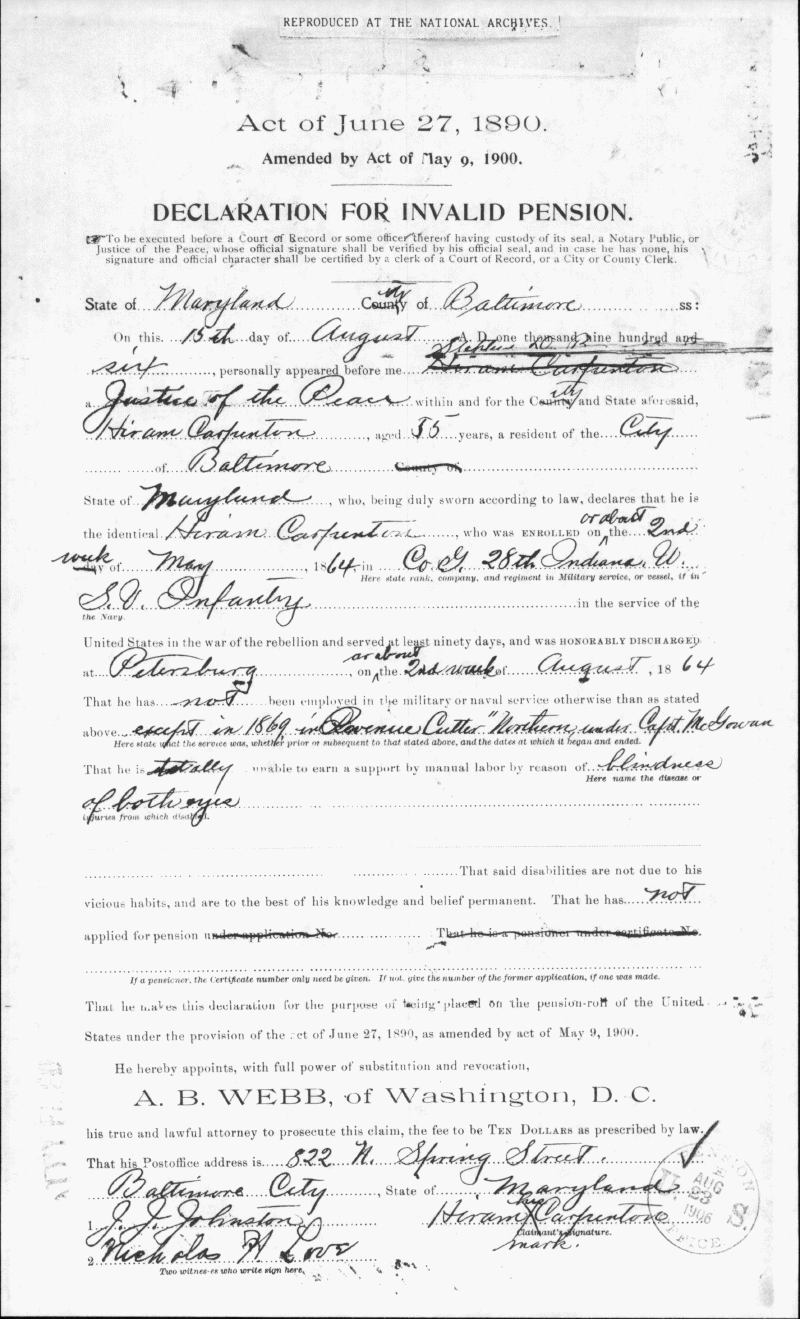 REPRODUCED AT THE NATIONAL ARCHIVES.
Act of June 27, 1890.
Amended by Act of May 9, 1900.
DECLARATION FOR INVALID PENSION.
To be executed before a Court of Record or some officer thereof having custody of its seal, a Notary Public, or
Justice of the Peace, whose official signature shall be verified by his official seal, and in case he has none, his
signature and official character shall be certified by a clerk of a Court of Record, or a City or County Clerk.
State of Maryland County ity of Baltimore ss:
On this 15th day of August A. D. one thousand nine hundred and
six, personally appeared before me Hiram Carpenton
a Justice of the Peace within and for the County ity and State aforesaid,
Hiram Carpenton, aged 55 years, a resident of the City
of Baltimore County of
State of Maryland, who, being duly sworn according to law, declares that he is
the identical Hiram Carpenton, who was ENROLLED or about on the 2nd
week day of May, 1864 in Co. G. 28th Indiana, U.
Here state rank, company, and regiment in Military service, or vessel, if in
S. V. Infantry in the service of the
the Navy.
United States in the war of the rebellion and served at least ninety days, and was HONORABLY DISCHARGED
at Petersburg, or about on the 2nd week of August, 1864
That he has not been employed in the military or naval service otherwise than as stated
above except in 1869 in Revenue Cutter "Northern, under Capt. McGowan
Here state what the service was, whether prior or subsequent to that stated above, and the dates at which it began and ended.
That he is totally unable to earn a support by manual labor by reason of blindness
Here name the disease or
of both eyes
injuries from which disabled.
That said disabilities are not due to his
vicious habits, and are to the best of his knowledge and belief permanent. That he has not
applied for pension under application No. That he is a pensioner under certificate No.
If a pensioner, the Certificate number only need be given. If not, give the number of the former application, if one was made.
That he makes this declaration for the purpose of being placed on the pension-roll of the United
States under the provision of the act of June 27, 1890, as amended by act of May 9, 1900.
He hereby appoints, with full power of substitution and revocation,
A. B. WEBB, of Washington, D. C.
his true and lawful attorney to prosecute this claim, the fee to be TEN DOLLARS as prescribed by law.
That his Postoffice address is 822 N. Spring Street.
Baltimore City, State of Maryland
1 J. J. Johnston Hiram his Carpenton
Claimant's signature.
mark.
2 Nicholas H Love
Two witnesses who write sign here.
PENSION OFFICE
AUG
23
1906